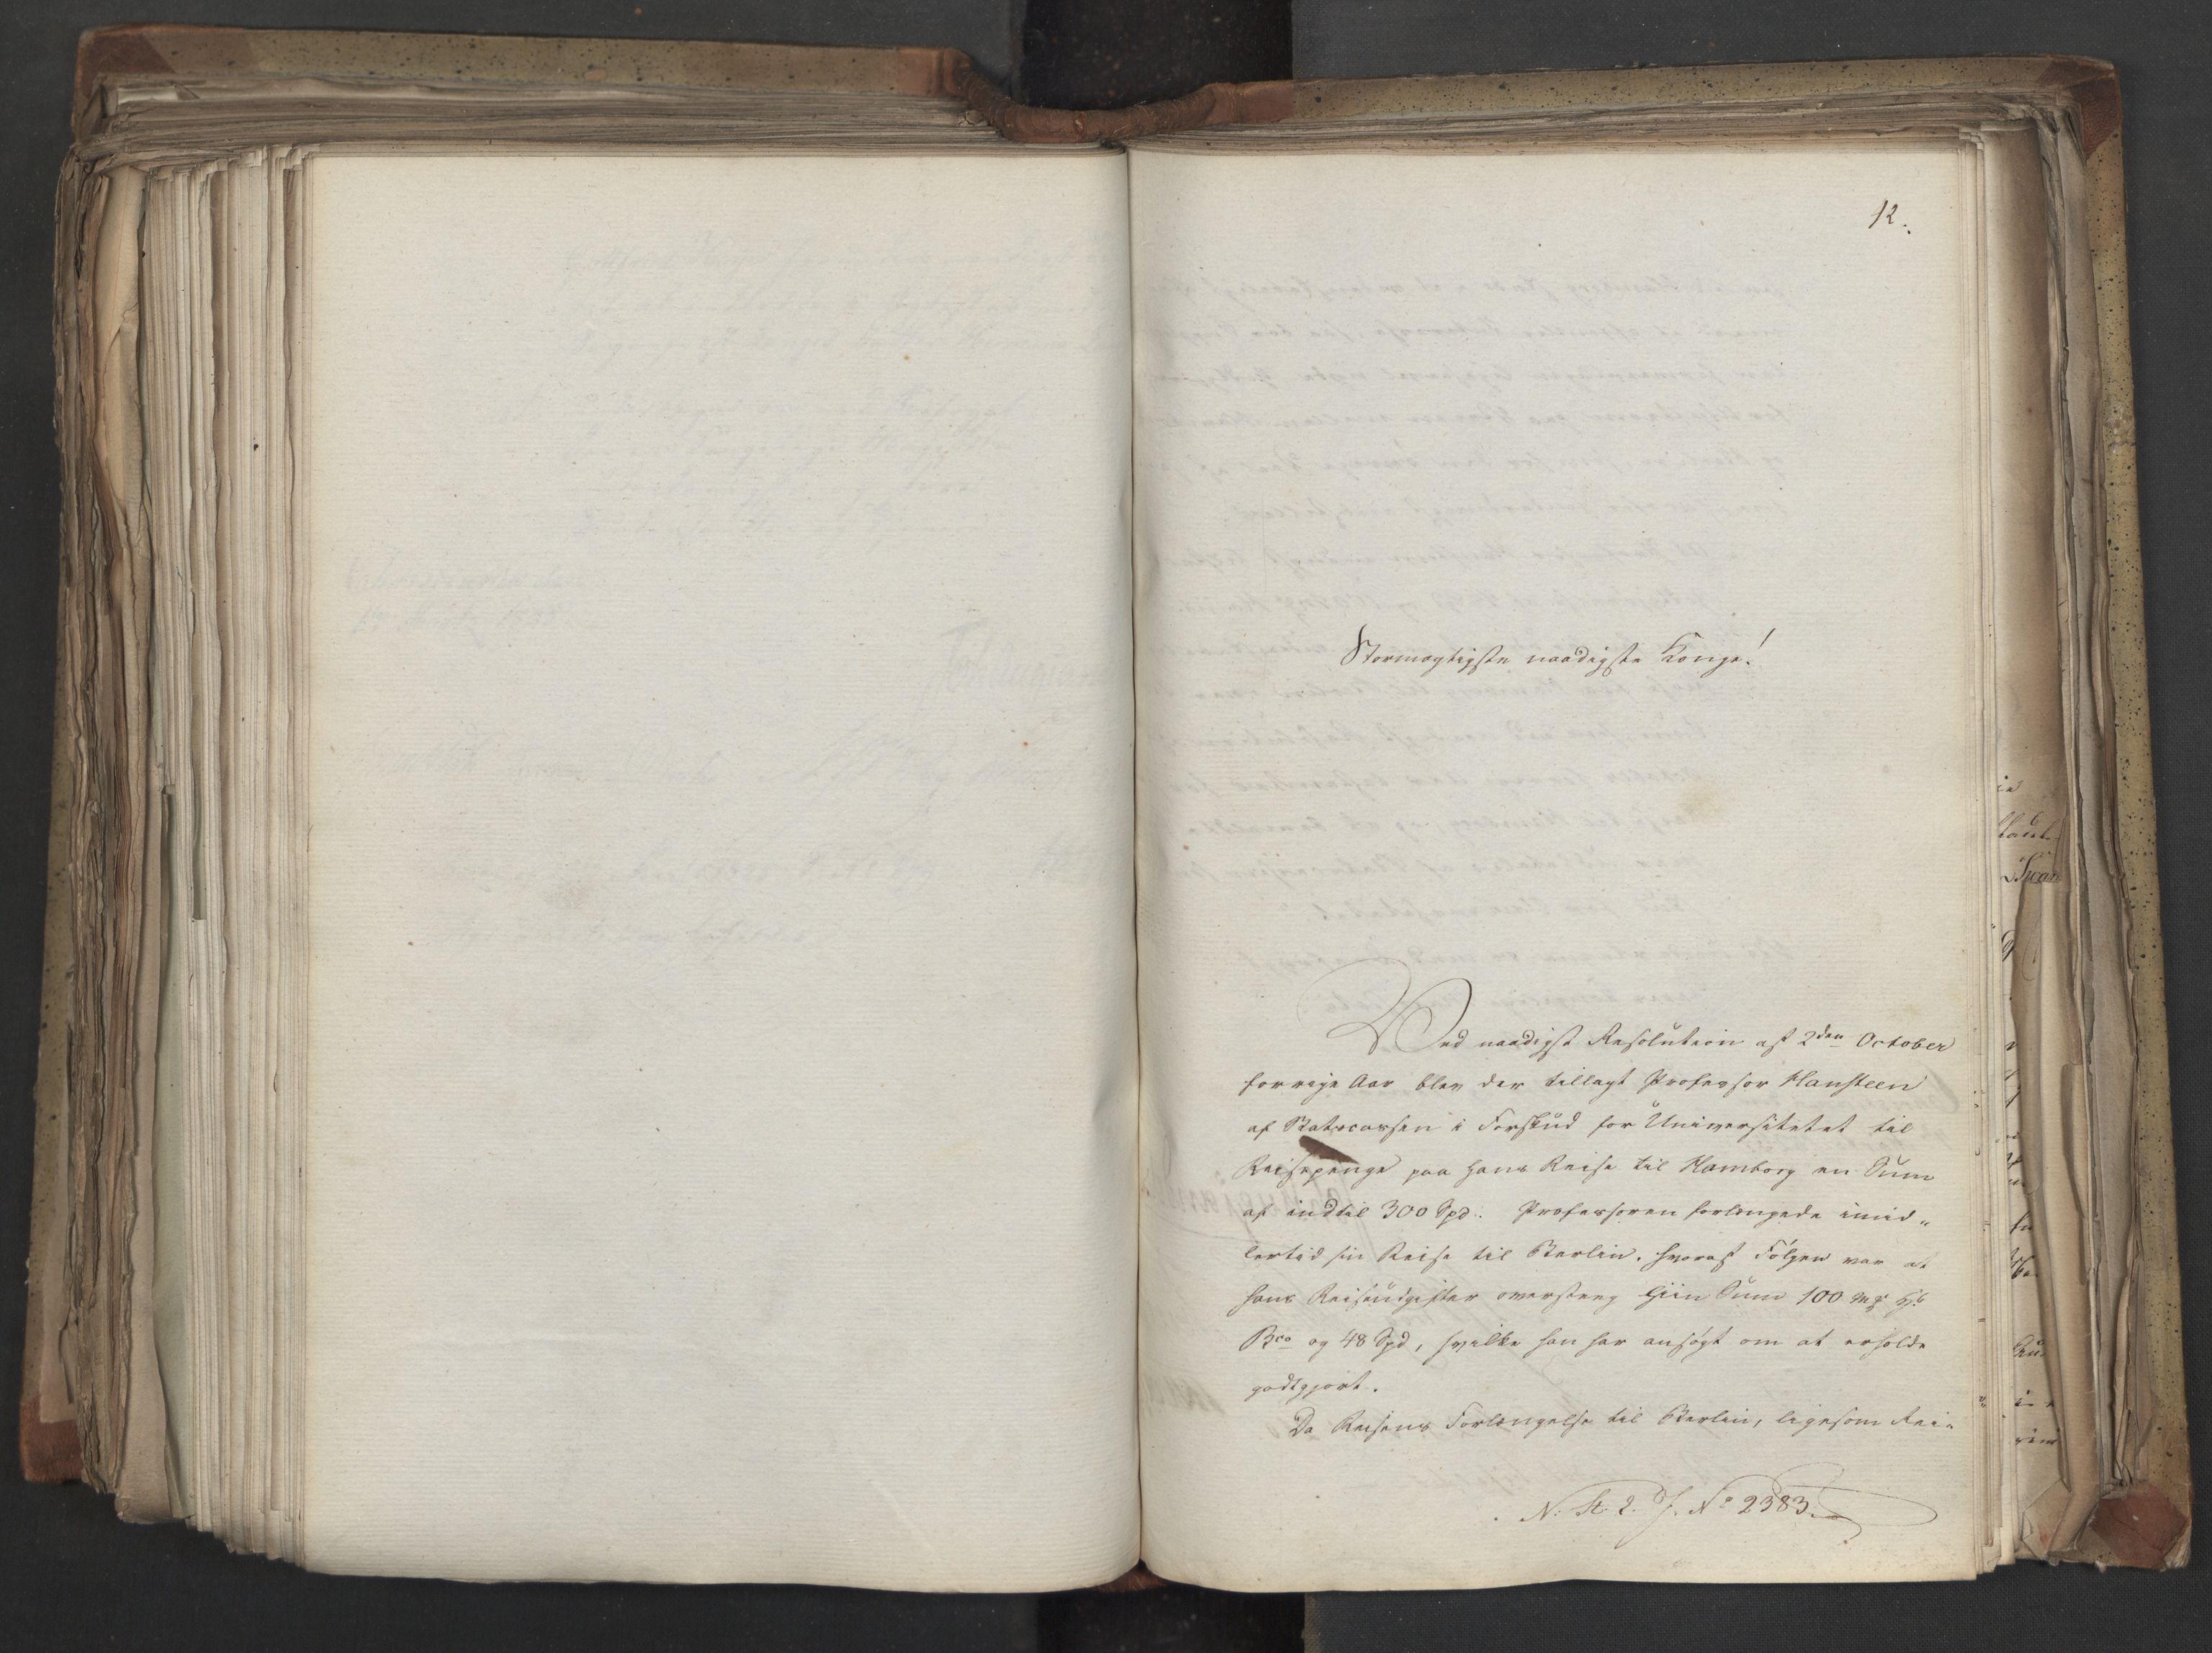 12.
Stormægtigste naadigste Konge!
Ved naadigst Resolution af 2den October
forrige Aar blev der tillagt Professor Hansteen
af Statscassen i Forskud for Universitetet til
Reisepenge paa hans Reise til Hamborg en Sum
af indtil 300 Spd. Professoren forlængede imid„
lertid sin Reise til Berlin, hvoraf Følgen var at
hans Reiseudgifter oversteeg hiin Sum 100 Mk Hb.
Bco og 48 Spd, hvilke han har ansøgt om at erholde
godtgjort.
Da Reisens Forlængelse til Berlin, ligesom Rei„
N. St. 2. J. No 2383.